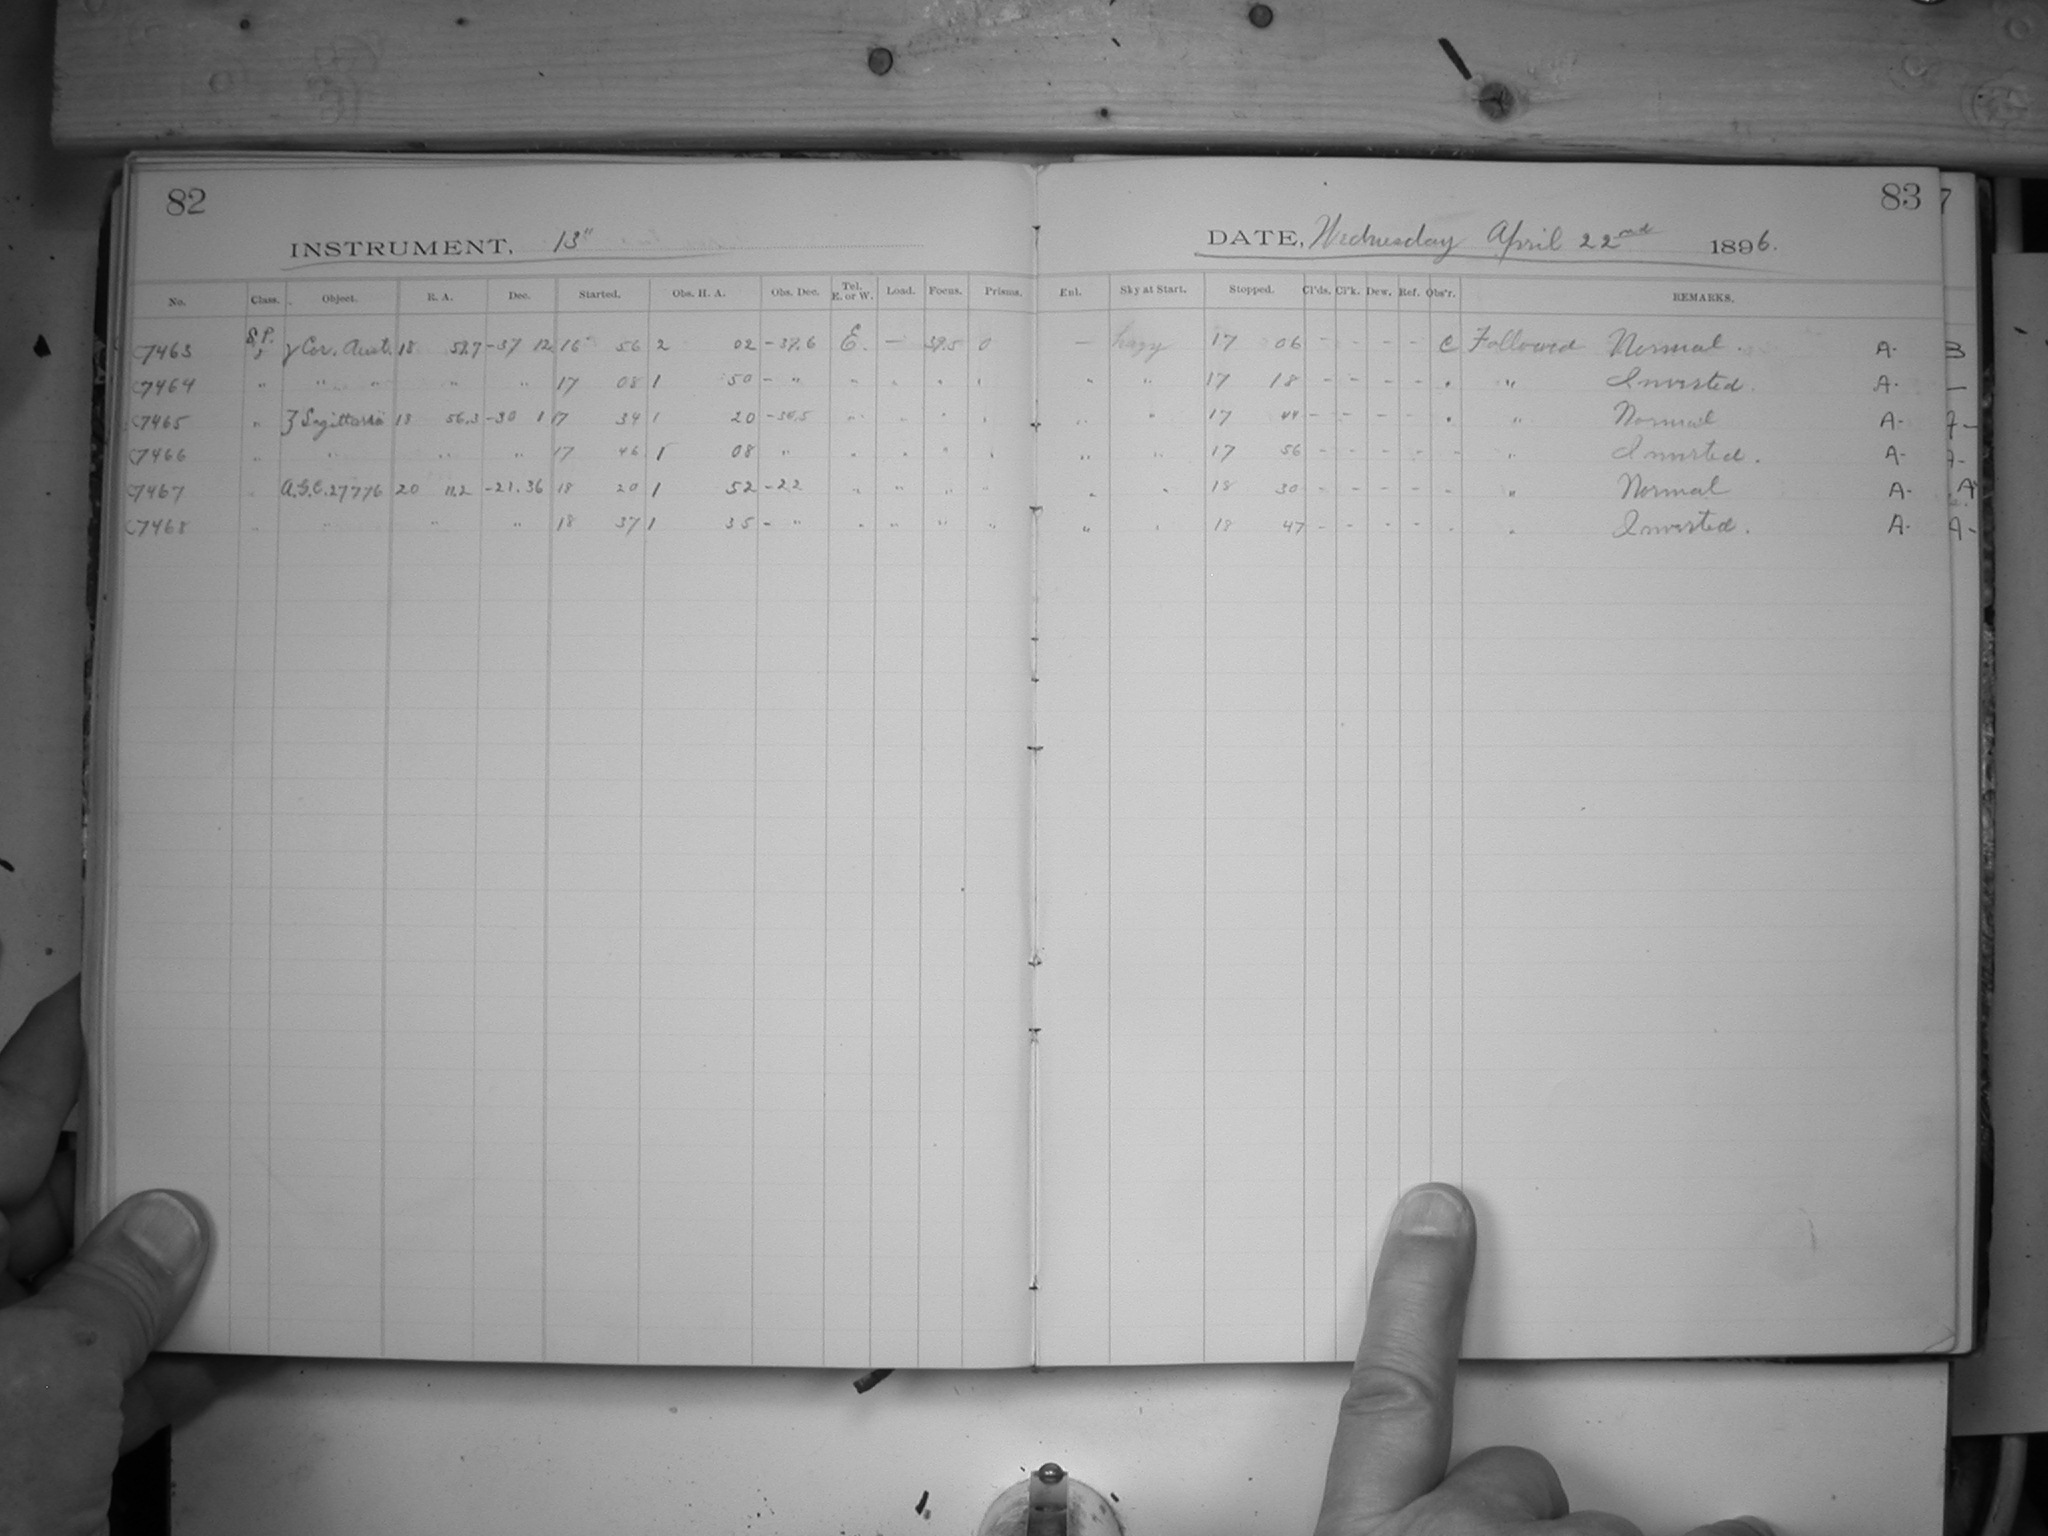 82
INSTRUMENT, 13"
No. Class. Object. R. A. Dec. Started. Obs. H. A. Obs. Dec. Tel. E. or W. Load. Focus. Prisms.
C7463 S.P. γ Cor. Aust. 18 58.7 -37 12 16 56 2 02 E. — 0
C7464 " " " " " 17 08 1 50 - " " " " "
C7465 " ζ Sagittarii 18 56.3 -30 1 17 34 1 20 " " " "
C7466 " " " " 17 46 1 08 " " " " "
C7467 " A.G.C. 27776 20 11.2 -21.36 18 20 1 52 -22 " " " "
C7468 " " " " 18 37 1 35 - " " " " "
83
DATE, Wednesday April 22nd 1896.
Enl. Sky at Start. Stopped. Cl'ds. Cl'k. Dew. Ref. Obs'r. REMARKS.
— hazy 17 06 - - - - C Followed Normal. A- B
" " 17 18 - - - - " " Inverted. A- —
" " 17 44 - - - - " " Normal A-
" " 17 56 - - - - - " Inverted. A-
" " 18 30 - - - - - " Normal A- A
" " 18 47 - - - - " " Inverted. A- A-
7